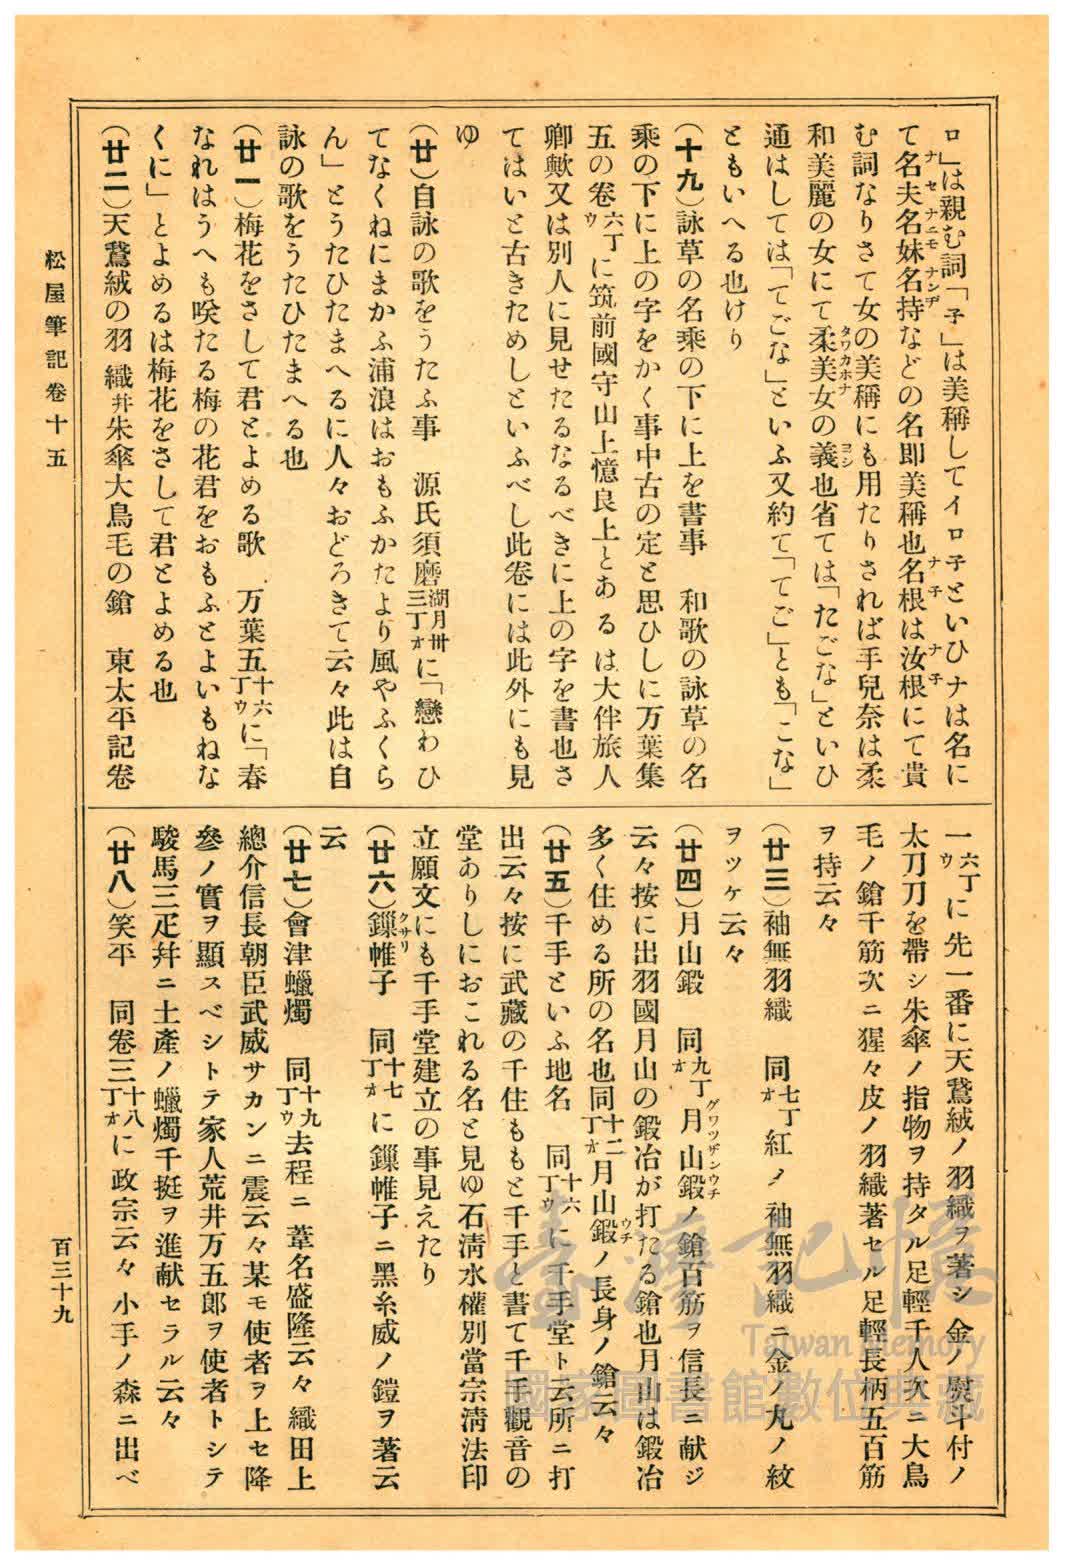 ロ」は親む詞「子」は美稱してイロ子といひナは名に
て名夫名妹名持などの名即美稱也名根は汝根にて貴
む詞なりさて女の美稱にも用たりされば手兒奈は柔
和美麗の女にて柔美女の義也省ては「たごな」といひ
通はしては「てごな」といふ又約て「てご」とも「こな」
ともいへる也けり
(十九)詠草の名乘の下に上を書事 和歌の詠草の名
乘の下に上の字をかく事中古の定と思ひしに万葉集
五の卷六丁ウに筑前國守山上憶良上とあるは大伴旅人
卿歟又は別人に見せたるなるべきに上の字を書也さ
てはいと古きためしといふべし此卷には此外にも見
ゆ
(廿)自詠の歌をうたふ事 源氏須磨湖月卅三丁オに「戀わひ
てなくねにまかふ浦浪はおもふかたより風やふくら
ん」とうたひたまへるに人々おどろきて云々此は自
詠の歌をうたひたまへる也
(廿一)梅花をさして君とよめる歌 万葉五十六丁ウに「春
なれはうへも咲たる梅の花君をおもふとよいもねな
くに」とよめるは梅花をさして君とよめる也
(廿二)天鵞絨の羽織幷朱傘大鳥毛の鎗 東太平記卷
一六丁ウに先一番に天鵞絨ノ羽織ヲ著シ金ノ熨斗付ノ
太刀刀を帶シ朱傘ノ指物ヲ持タル足輕千人次ニ大鳥
毛ノ鎗千筋次ニ猩々皮ノ羽織著セル足輕長柄五百筋
ヲ持云々
(廿三)袖無羽織 同七丁オ紅ノ袖無羽織ニ金ノ丸ノ紋
ヲツケ云々
(廿四)月山鍛 同九丁オ月山鍛ノ鎗百筋ヲ信長ニ献ジ
云々按に出羽國月山の鍛冶が打たる鎗也月山は鍛冶
多く住める所の名也同十二丁オ月山鍛ノ長身ノ鎗云々
(廿五)千手といふ地名 同十六丁ウに千手堂ト云所ニ打
出云々按に武藏の千住ももと千手と書て千手觀音の
堂ありしにおこれる名と見ゆ石淸水權別當宗淸法印
立願文にも千手堂建立の事見えたり
(廿六)鏁帷子 同十七丁オに鏁帷子ニ黑糸威ノ鎧ヲ著云
云
(廿七)會津蠟燭 同十九丁ウ去程ニ葦名盛隆云々織田上
總介信長朝臣武威サカンニ震云々某モ使者ヲ上セ降
參ノ實ヲ顯スベシトテ家人荒井万五郎ヲ使者トシテ
駿馬三疋幷ニ土產ノ蠟燭千挺ヲ進献セラル云々
(廿八)笑平 同卷三十八丁オに政宗云々小手ノ森ニ出べ
松屋筆記卷十五
百三十九
臺灣記憶
Taiwan Memory
國家圖書館數位典藏